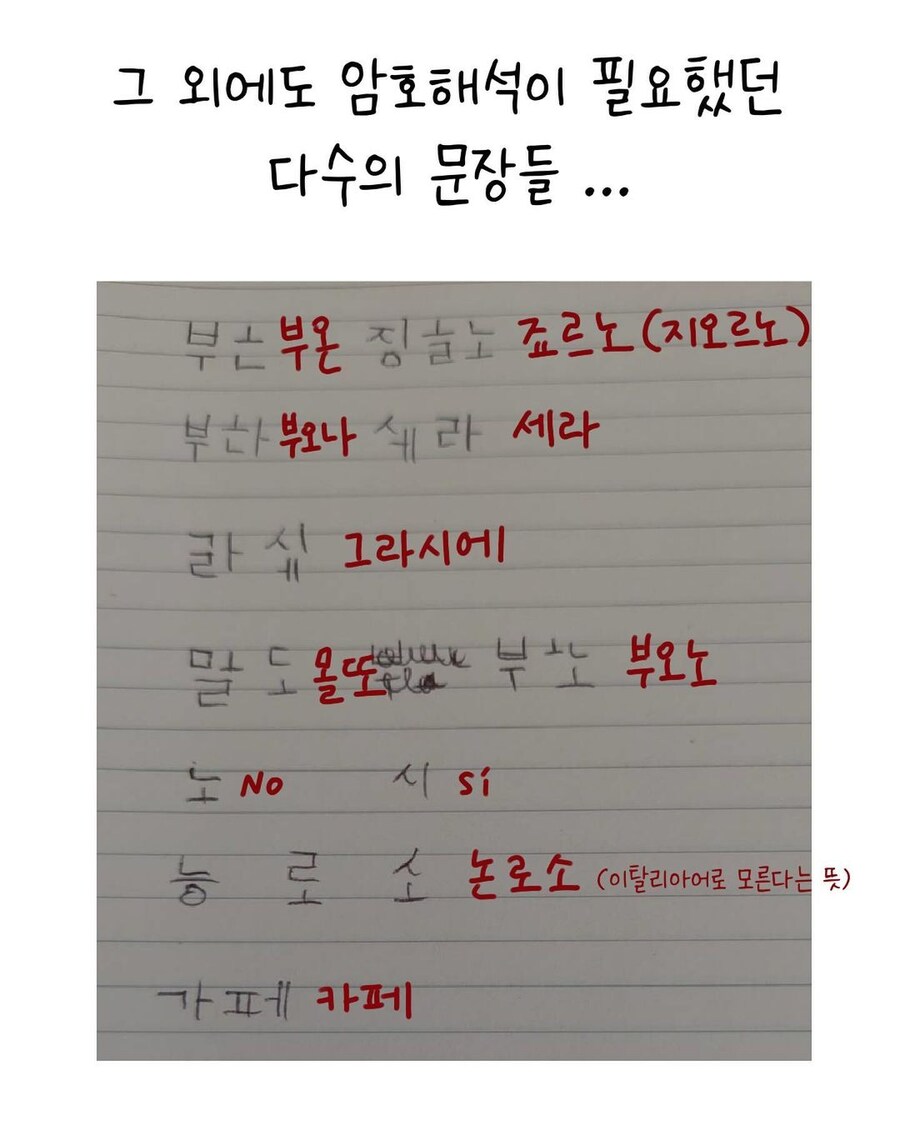 그 외에도 암호해석이 필요했던
다수의 문장들 ...
부슨 부온 징슬노 죠르노 (지오르노)
부하 부오나 쉐라 세라
라쉐 그라시에
말도 몰또 부노 부오노
노 No 시 Sí
능로소 논로소 (이탈리아어로 모른다는 뜻)
가페 카페